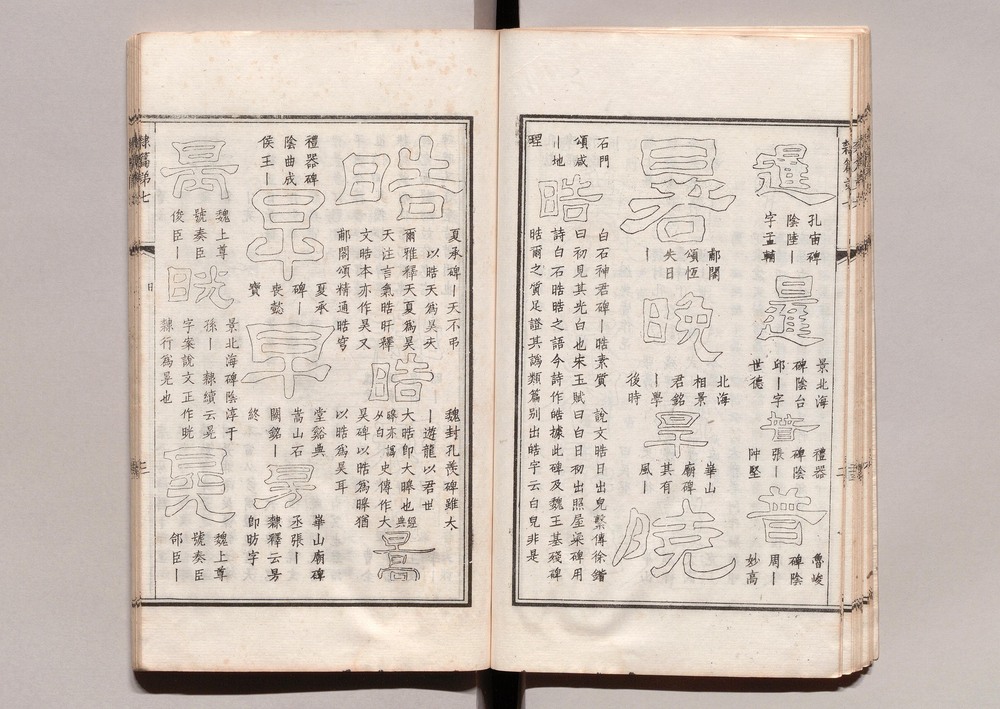 暹
孔宙碑
陰陸丨
字孟輔
暹
景北海
碑陰台
邱丨字
世德
普
禮器
碑陰
張丨
仲堅
普
魯峻
碑陰
周丨
妙高
晷
郙閣
頌恆
失日
丨
晚
北海
相景
君銘
丨學
後時
旱
華山
廟碑
其有
風丨
曉
石門
頌咸
丨地
理
晧
白石神君碑丨晧素質 說文晧日出皃繫傳徐鍇
曰初見其光白也宋玉賦曰白日初出照屋梁碑用
詩白石晧晧之語今詩作皓據此碑及魏王基殘碑
晧爾之質足證其譌類篇別出皓字云白皃非是
晧
夏承碑丨天不弔
以晧天爲昊天
爾雅釋天夏爲昊
天注言氣晧旰釋
文晧本亦作昊又
郙閣頌精通晧穹
晧
魏封孔羡碑雖太
丨遊龍以君世
大晧卽大皞也經典
皞亦譌从白史傳作大
昊碑以晧爲皞猶
以晧爲昊耳
暠
禮器碑
陰曲成
侯王丨
早
夏承
碑丨
喪懿
寶
早
堂谿典
嵩山石
闕銘丨
終
華山廟碑
丞張丨
隸釋云
卽昉字
魏上尊
號奏臣
俊臣丨
晄
景北海碑陰淳于
孫丨 隸續云晃
字案說文正作晄
隸行爲晃也
晃
魏上尊
號奏臣
郃臣丨
隸篇第七
日
三